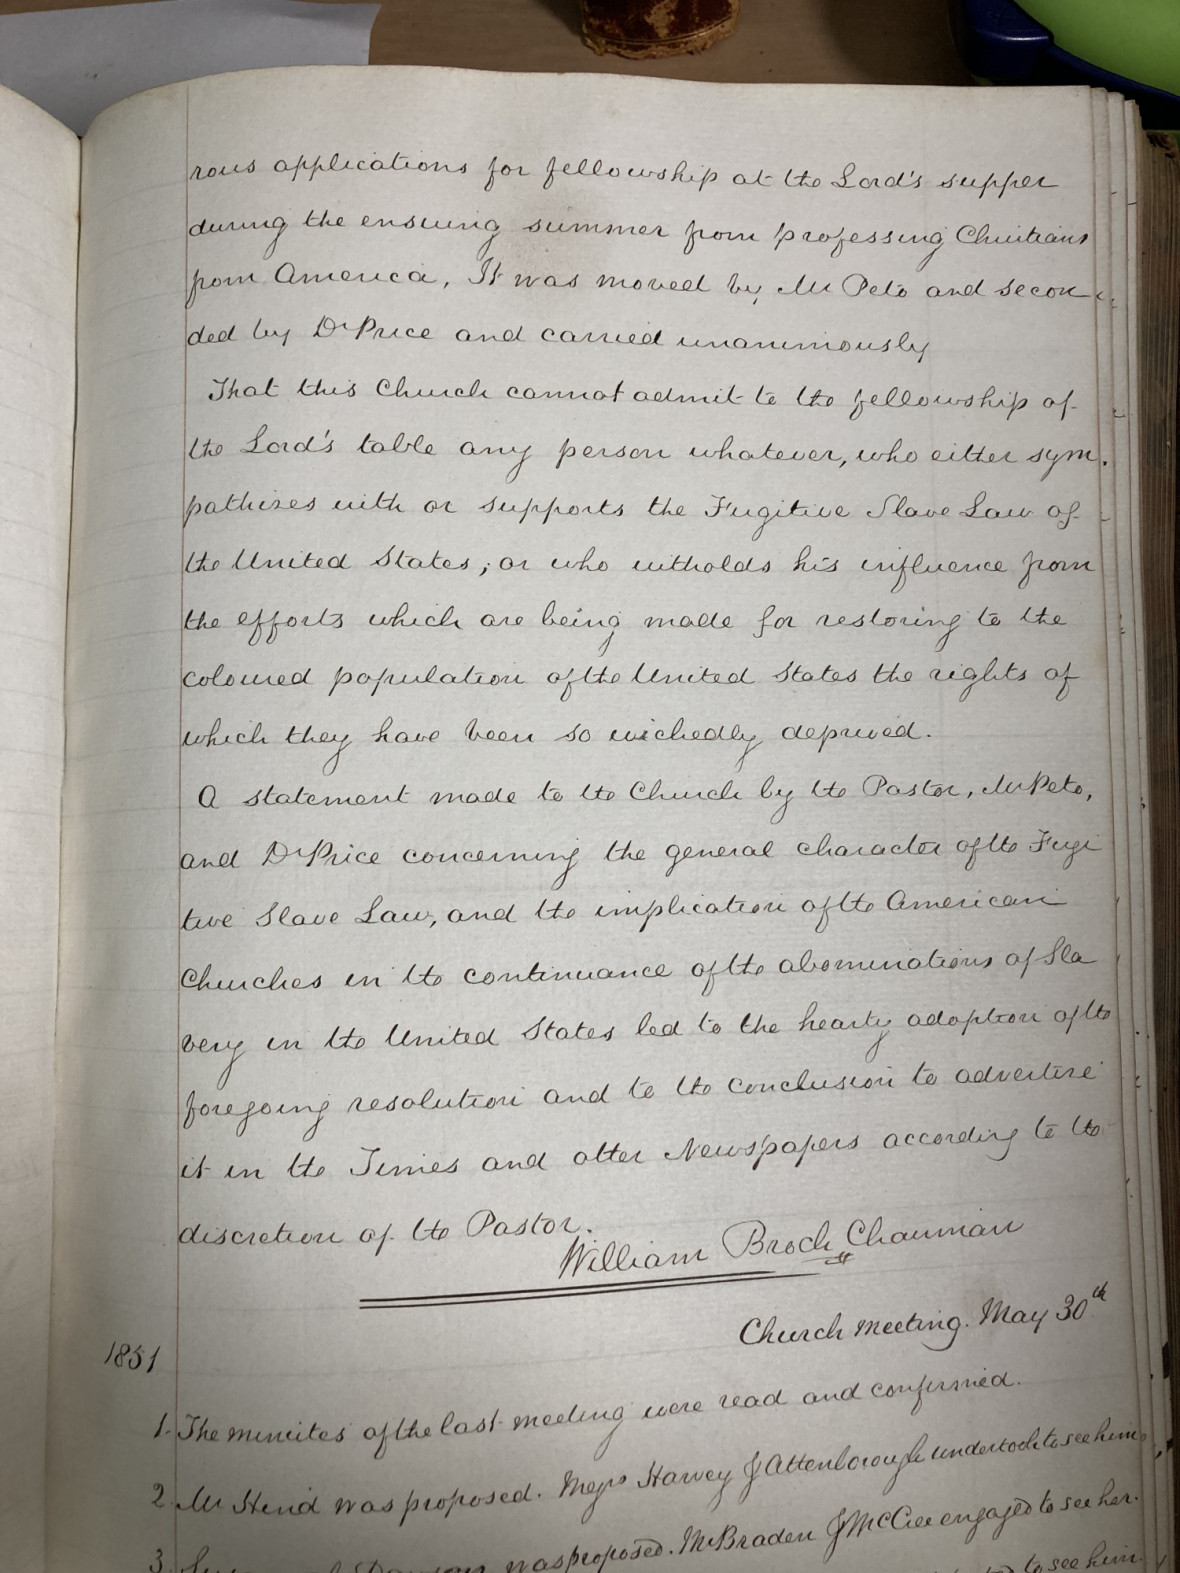 rous applications for fellowship at the Lord's supper
during the ensuing summer from professing Christians
from America, It was moved by Mr Peto and secon
ded by Dr Price and carried unanimously
That this Church cannot admit to the fellowship of
the Lord's table any person whatever, who either sym.
pathizes with or supports the Fugitive Slave Law of
the United States, or who witholds his influence from
the efforts which are being made for restoring to the
coloured population of the United States the rights of
which they have been so wickedly deprived.
A statement made to the Church by the Pastor, Mr Peto,
and Dr Price concerning the general character of the Fugi
tive Slave Law, and the implication of the American
Churches in the continuance of the abominations of Sla
very in the United States led to the hearty adoption of the
foregoing resolution and to the conclusion to advertise
it in the Times and other Newspapers according to the
discretion of the Pastor.
William Brock Chairman
Church meeting. May 30th
1851
1. The minutes of the last meeting were read and confirmed.
2. Mr was proposed. Messrs Harvey & Attenborough undertook to see him.
3. was proposed. Mr Braden & McCree engaged to see her.
to see him.